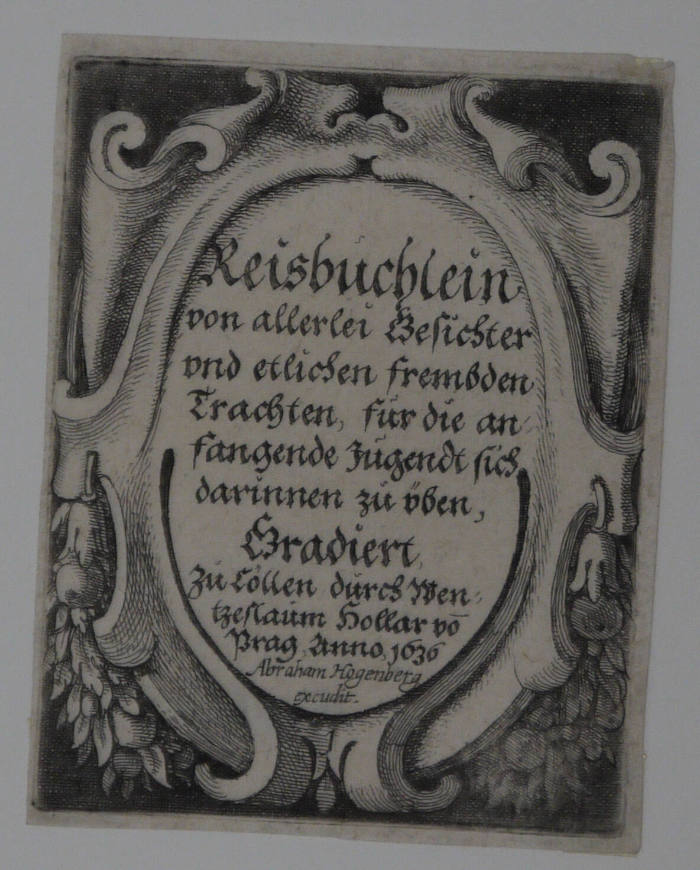 Reisbuchlein
von allerlei Gesichter
vnd etlichen frembden
Trachten, für die an-
fangende Jugendt sich
darinnen zu üben,
Gradiert
Zu Cöllen durch Wen-
tzeslaum Hollar vō
Prag, Anno, 1636
Abraham Hogenberg
excudit.